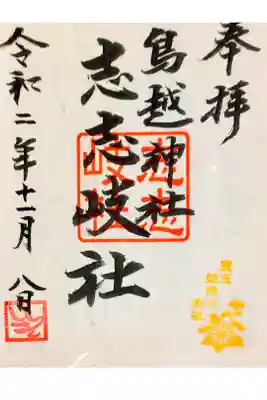 奉拝
鳥越神社
志志岐社
令和二年十一月八日